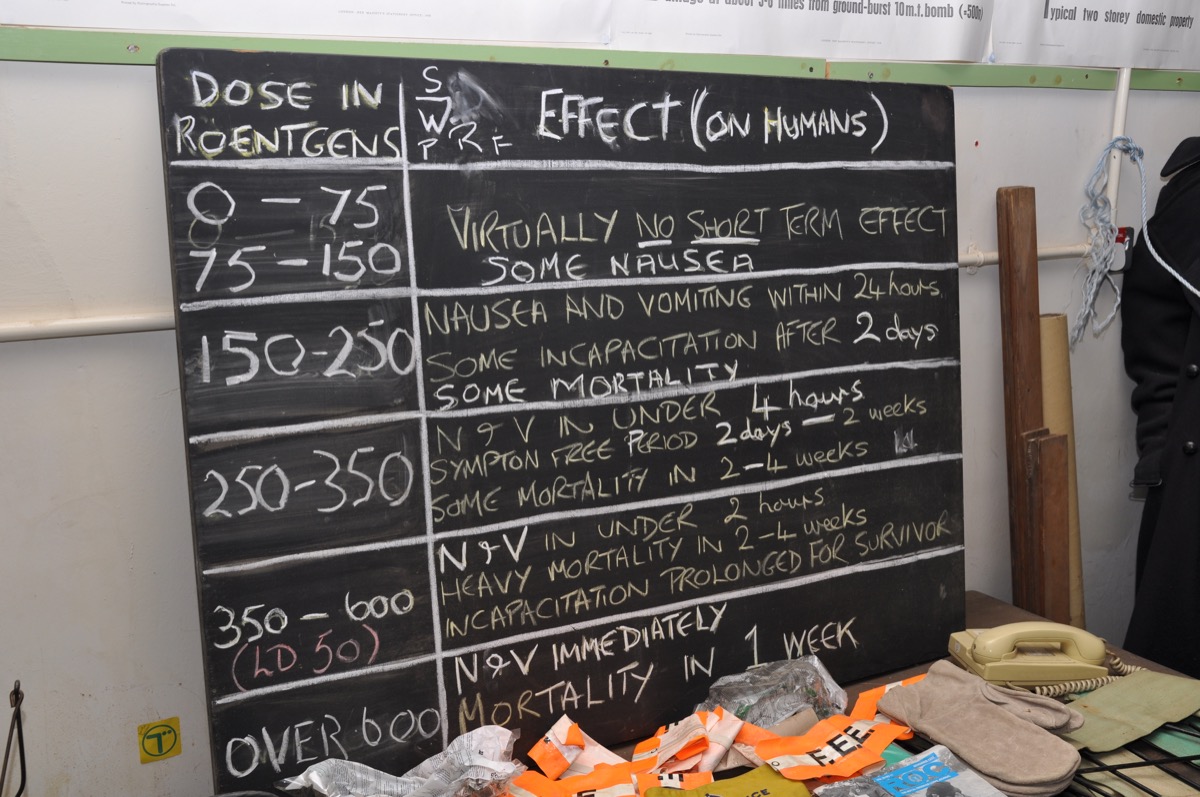 from ground-burst 10m.t.bomb (=500n)
Typical two storey domestic property
DOSE IN
ROENTGENS
S
W
P R F
EFFECT (ON HUMANS)
0 - 75
VIRTUALLY NO SHORT TERM EFFECT
75 - 150
SOME NAUSEA
150-250
NAUSEA AND VOMITING WITHIN 24 hours
SOME INCAPACITATION AFTER 2 days
SOME MORTALITY
250-350
N & V IN UNDER 4 hours
SYMPTON FREE PERIOD 2 days — 2 weeks
SOME MORTALITY IN 2-4 weeks
350 - 600
(LD 50)
N & V IN UNDER 2 hours
HEAVY MORTALITY IN 2-4 weeks
INCAPACITATION PROLONGED FOR SURVIVOR
OVER 600
N & V IMMEDIATELY
MORTALITY IN 1 WEEK